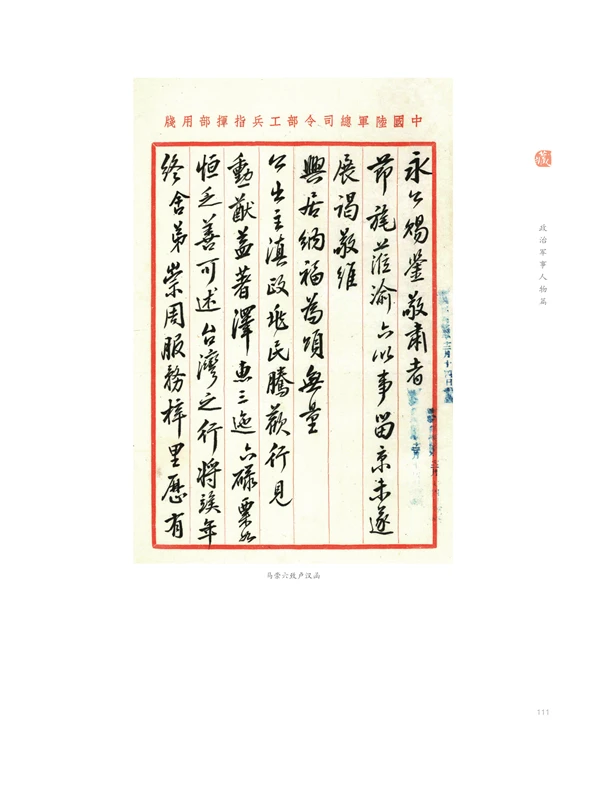 中國陸軍總司令部工兵指揮部用牋
永公賜鑒敬肅者
節旄蒞渝六以事留京未遂
展謁敬維
興居納福為頌無量
公出主滇政兆民騰歡行見
勳猷益著澤惠三迤六碌栗如
恒乏善可述台灣之行將俟年
終舍弟崇周服務梓里歷有
马崇六致卢汉函
政治军事人物篇
111